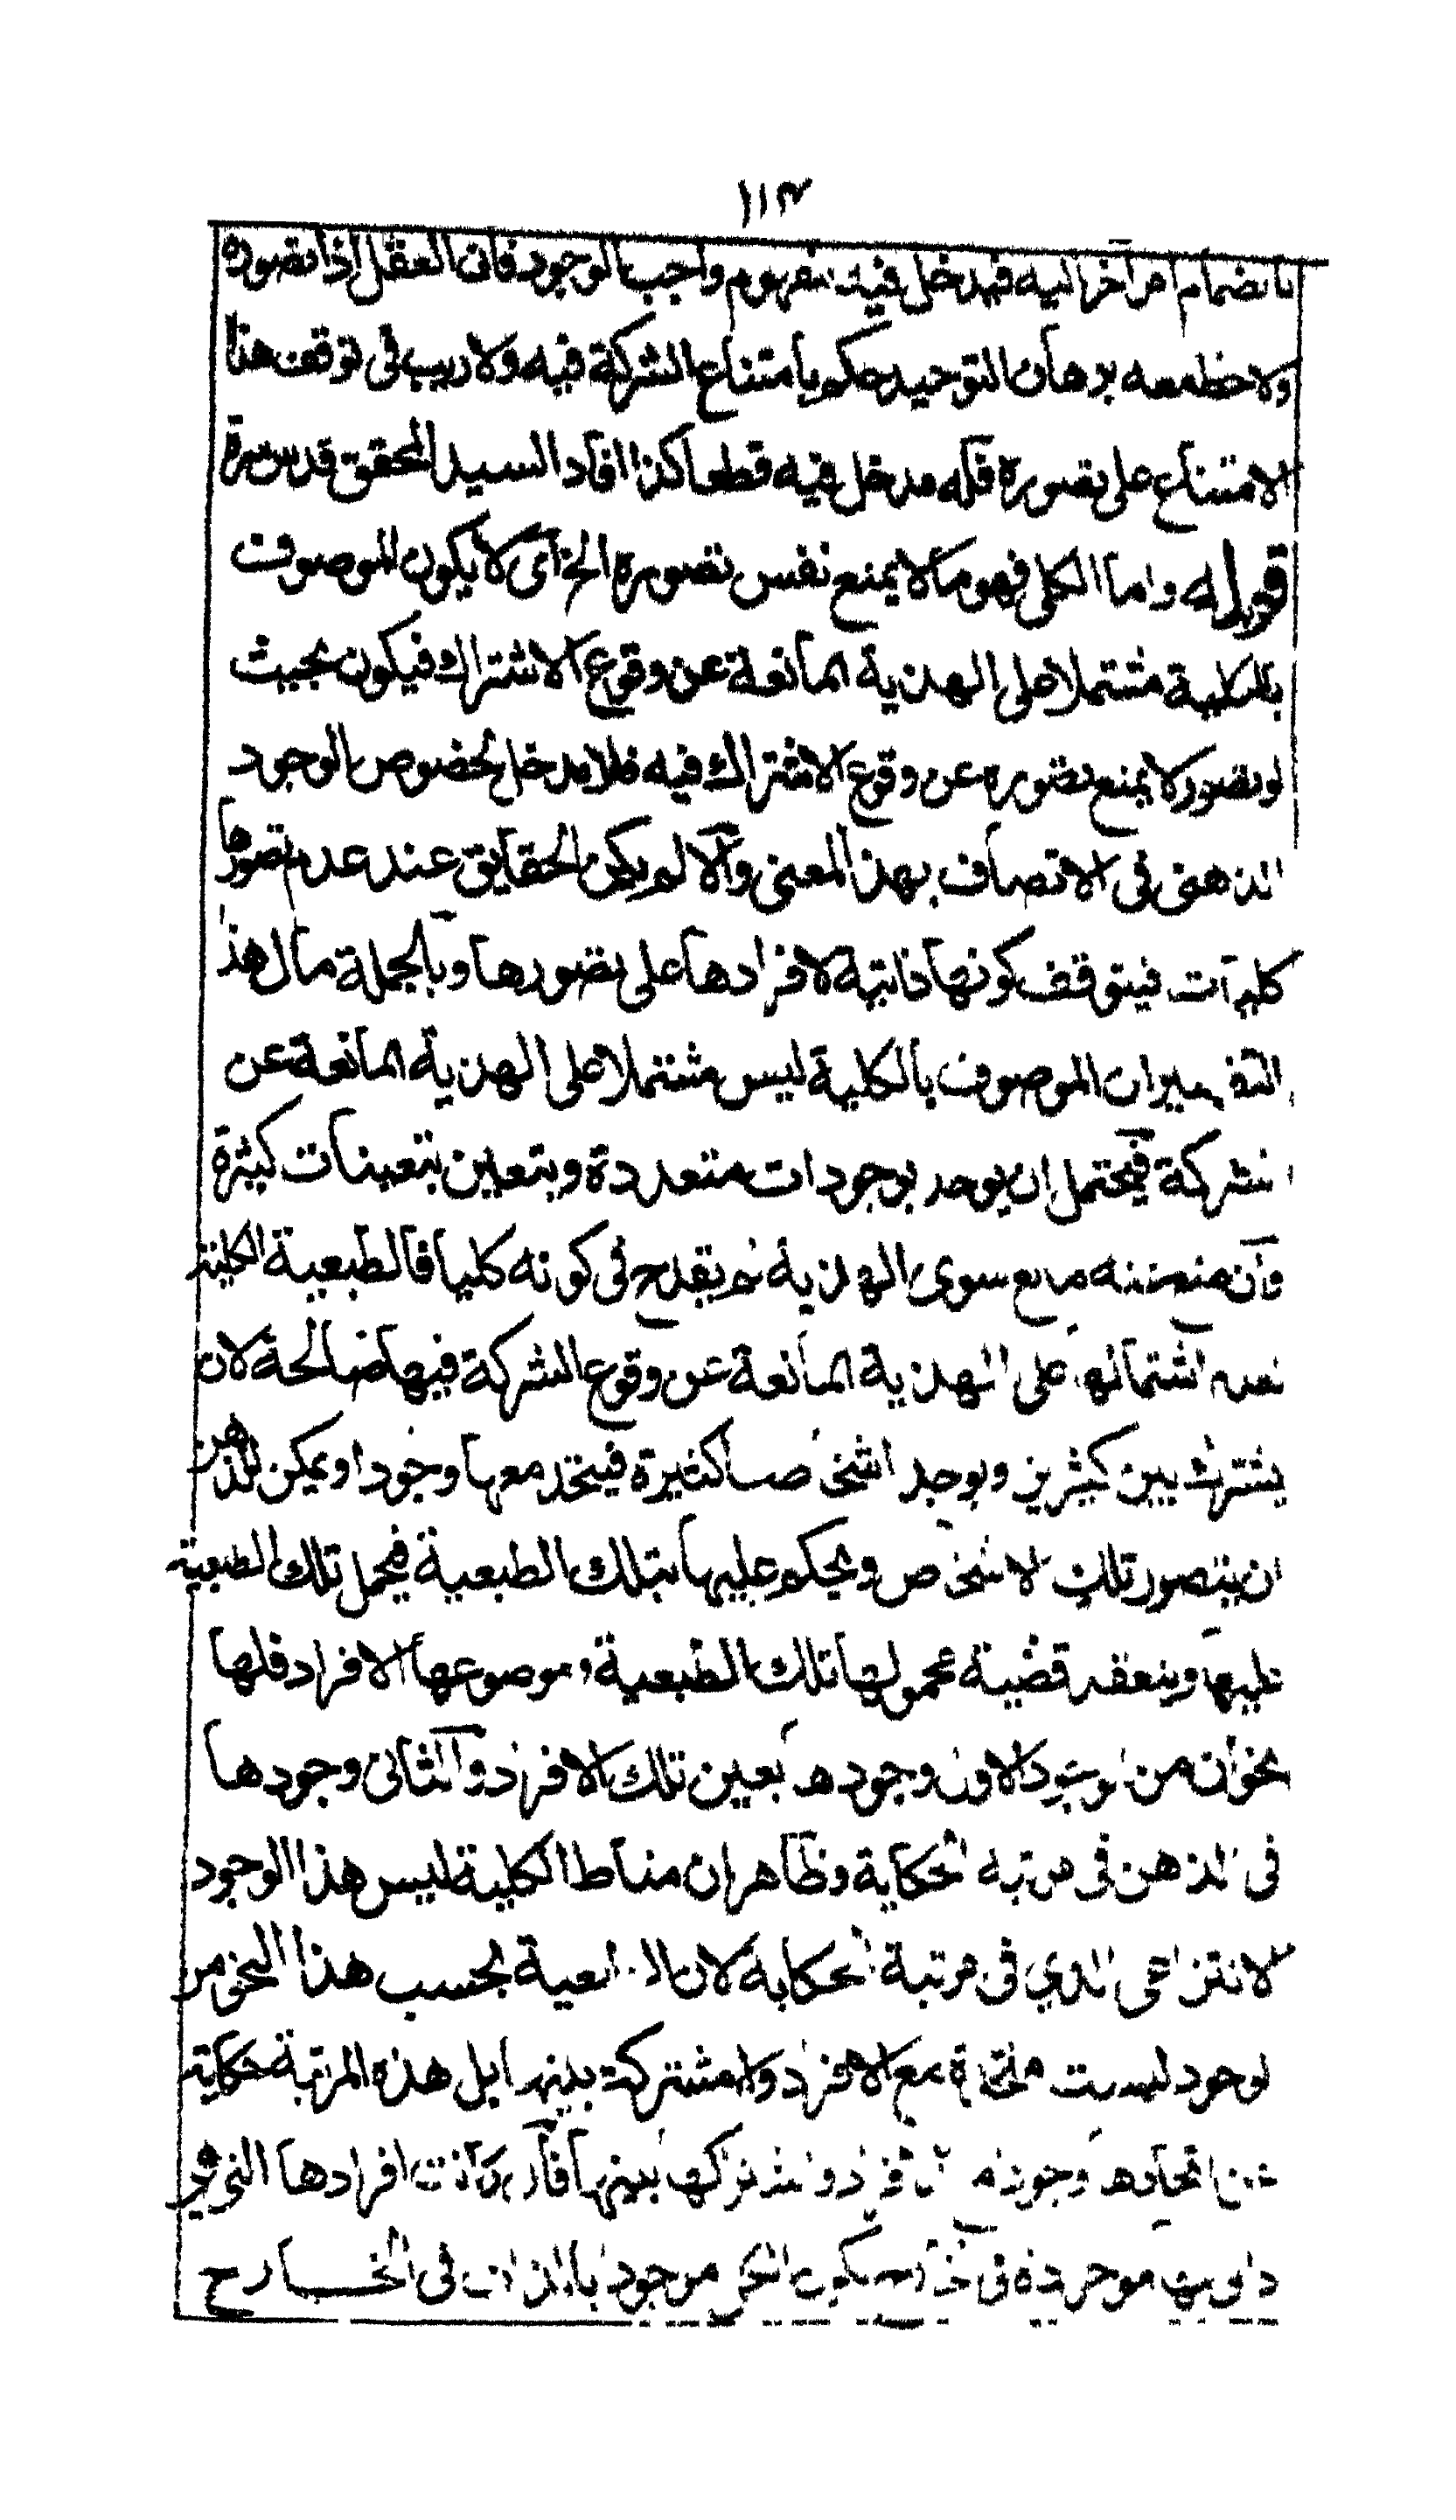 ١١٣
بانضمام امر آخر اليه فيدخل فيه مفهوم واجب الوجود فان العقل اذا تصوره
ولاحظ معه برهان التوحيد حكم بامتناع الشركة فيه ولا ريب في توقف هذا
الامتناع على تصوره فله مدخل فيه قطعا كذا افاد السيد المحقق قدس سره
قوله واما الكلي فهو ما لا يمنع نفس تصوره الخ اى لا يكون الموصوف
بالكلية مشتملا على الهذية المانعة عن وقوع الاشتراك فيكون بحيث
لو تصور لا يمنع تصوره عن وقوع الاشتراك فيه فلا مدخل لخصوص الوجود
الذهني في الاتصاف بهذا المعنى والا لم يكن الحقايق عند عدم تصورها
كليات فيتوقف كونها ذاتية لافرادها على تصورها وبالجملة مآل هذا
التفسير ان الموصوف بالكلية ليس مشتملا على الهذية المانعة عن
الشركة فيحتمل ان يوجد بوجودات متعددة ويتعين بتعينات كثيرة
وان منع عنه مانع سوى الهذية لم يقدح في كونه كليا فالطبعية الكلية
لعدم اشتمالها على الهذية المانعة عن وقوع الشركة فيها صالحة لان
يشترك بين كثيرين ويوجد اشخاصا كثيرة فيتحد معها وجودا ويمكن للذهن
ان يتصور تلك الاشخاص ويحكم عليها بتلك الطبعية فيحمل تلك الطبعية
عليها وينعقد قضية محمولها تلك الطبعية وموضوعها الافراد فلها
نحوان من الوجود الاول وجودها بعين تلك الافراد والثاني وجودها
في الذهن في مرتبة الحكاية وظاهر ان مناط الكلية ليس هذا الوجود
الانتزاعي الذي في مرتبة الحكاية لان الطبعية بحسب هذا النحو من
الوجود ليست متحدة مع الافراد ولا مشتركة بينها بل هذه المرتبة حكاية
عن اتحادها وجودا مع الافراد واشتراكها بينها فان كانت افرادها التي هي
موجودة في الخارج يكون الكلي موجودا بالذات في الخارج